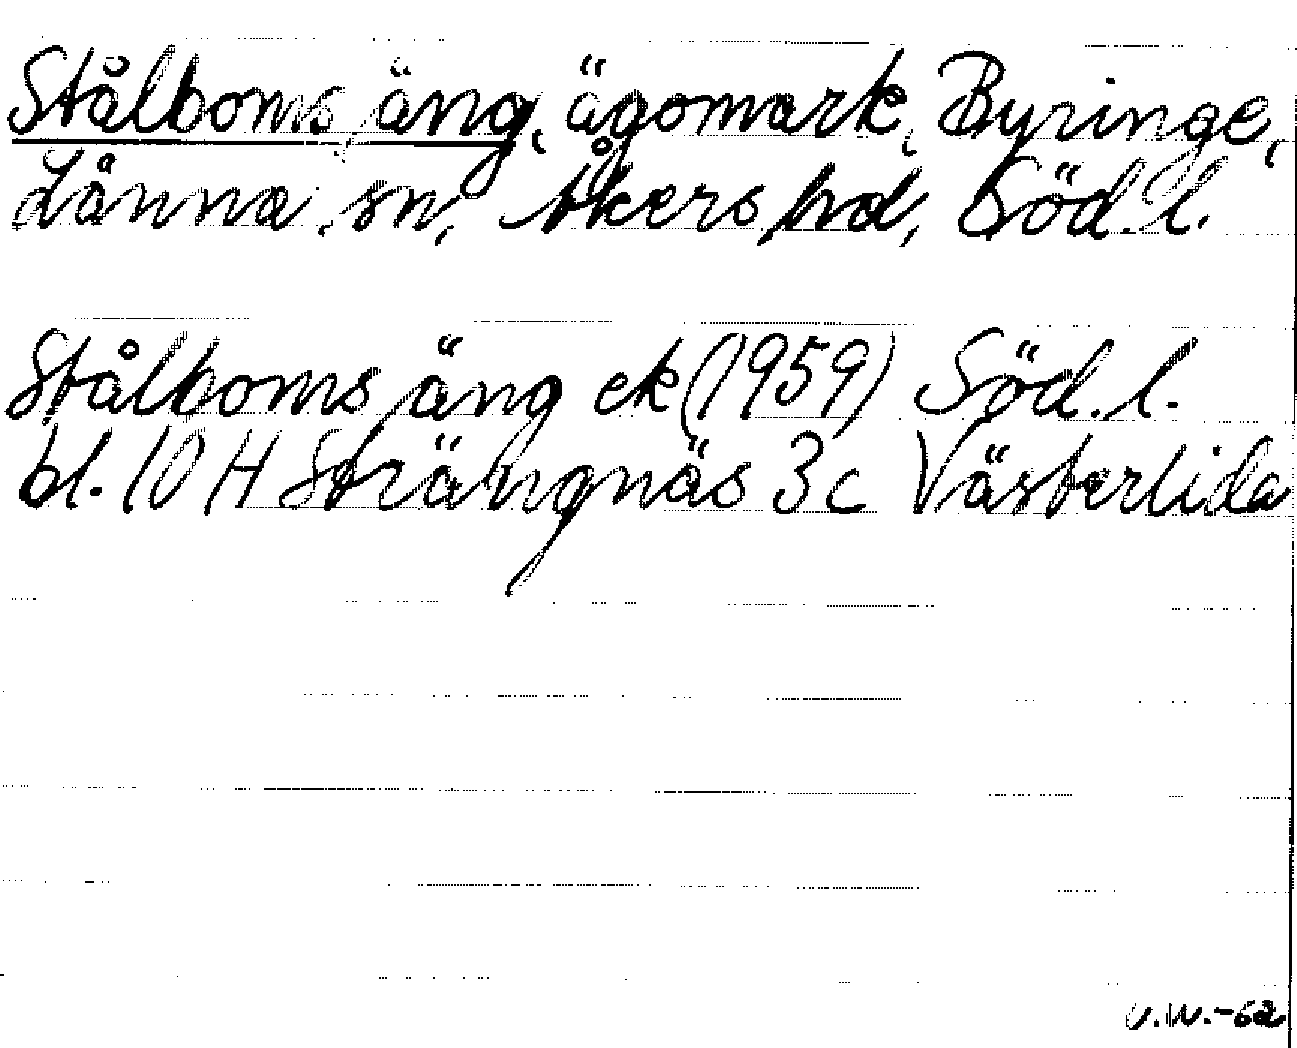 Stålboms äng, ägomark, Byringe,
Länna sn, Åkers hd, Söd. l.
Stålboms äng ek (1959) Söd. l.
bl. 10 H Strängnäs 3c Västerlida
U.W.-62